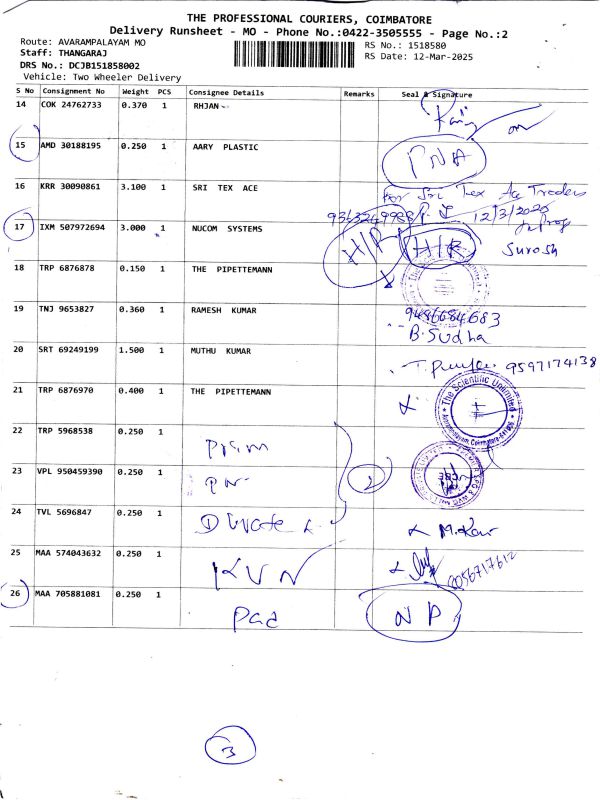 THE PROFESSIONAL COURIERS, COIMBATORE
Delivery Runsheet - MO - Phone No.:0422-3505555 - Page No.:2
Route: AVARAMPALAYAM MO RS No.: 1518580
Staff: THANGARAJ RS Date: 12-Mar-2025
DRS No.: DCJB151858002
Vehicle: Two Wheeler Delivery
S No Consignment No Weight PCS Consignee Details Remarks Seal & Signature
14 COK 24762733 0.370 1 RHJAN
15 AMD 30188195 0.250 1 AARY PLASTIC PNA
16 KRR 30090861 3.100 1 SRI TEX ACE For Sri Tex Ace Traders
12/3/2025
17 IXM 507972694 3.000 1 NUCOM SYSTEMS H/R H/R Surosh
18 TRP 6876878 0.150 1 THE PIPETTEMANN
19 TNJ 9653827 0.360 1 RAMESH KUMAR 9486684683
B.Sudha
20 SRT 69249199 1.500 1 MUTHU KUMAR 9597174138
21 TRP 6876970 0.400 1 THE PIPETTEMANN The Scientific Unlimited
22 TRP 5968538 0.250 1 Prism
23 VPL 950459390 0.250 1 2
24 TVL 5696847 0.250 1
25 MAA 574043632 0.250 1 KVN
26 MAA 705881081 0.250 1 Pad NP
3